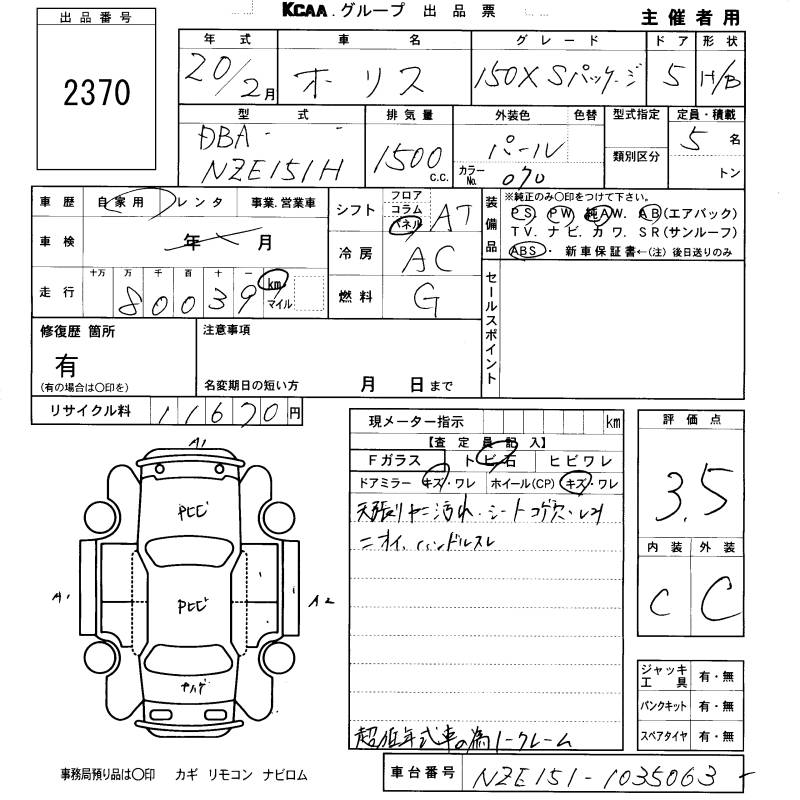 KCAA.グループ 出品票
主催者用
出品番号
2370
年式 車名 グレード ドア 形状
20/2月 オーリス 150X Sパッケージ 5 H/B
型式 排気量 外装色 色替 型式指定 定員・積載
DBA- -
NZE151H 1500 c.c. パール 5名
カラーNo. 070 類別区分 トン
車歴 自家用 レンタ 事業.営業車
車検 年 月
走行 十万 万 千 百 十 一
80039 km マイル
シフト フロア コラム パネル AT
冷房 AC
燃料 G
装備品
※純正のみ○印をつけて下さい。
PS. PW. 純AW. AB(エアバック)
TV. ナビ. カワ. SR(サンルーフ)
ABS・ 新車保証書←(注) 後日送りのみ
セールスポイント
修復歴 箇所
有
(有の場合は○印を)
注意事項
名変期日の短い方 月 日まで
リサイクル料 11670円
現メーター指示 km
【査定員記入】
Fガラス トビ石 ヒビワレ
ドアミラー キズ・ワレ ホイール(CP) キズ・ワレ
天張りヤニ汚れ・シートコゲ穴・シミ
ニオイ、ハンドルスレ
超低年式車の為ノークレーム
評価点
3.5
内装 外装
C C
ジャッキ工具 有・無
パンクキット 有・無
スペアタイヤ 有・無
A1
Pヒビ
A1 Pヒビ A2
事務局預り品は○印 カギ リモコン ナビロム
車台番号 NZE151-1035063